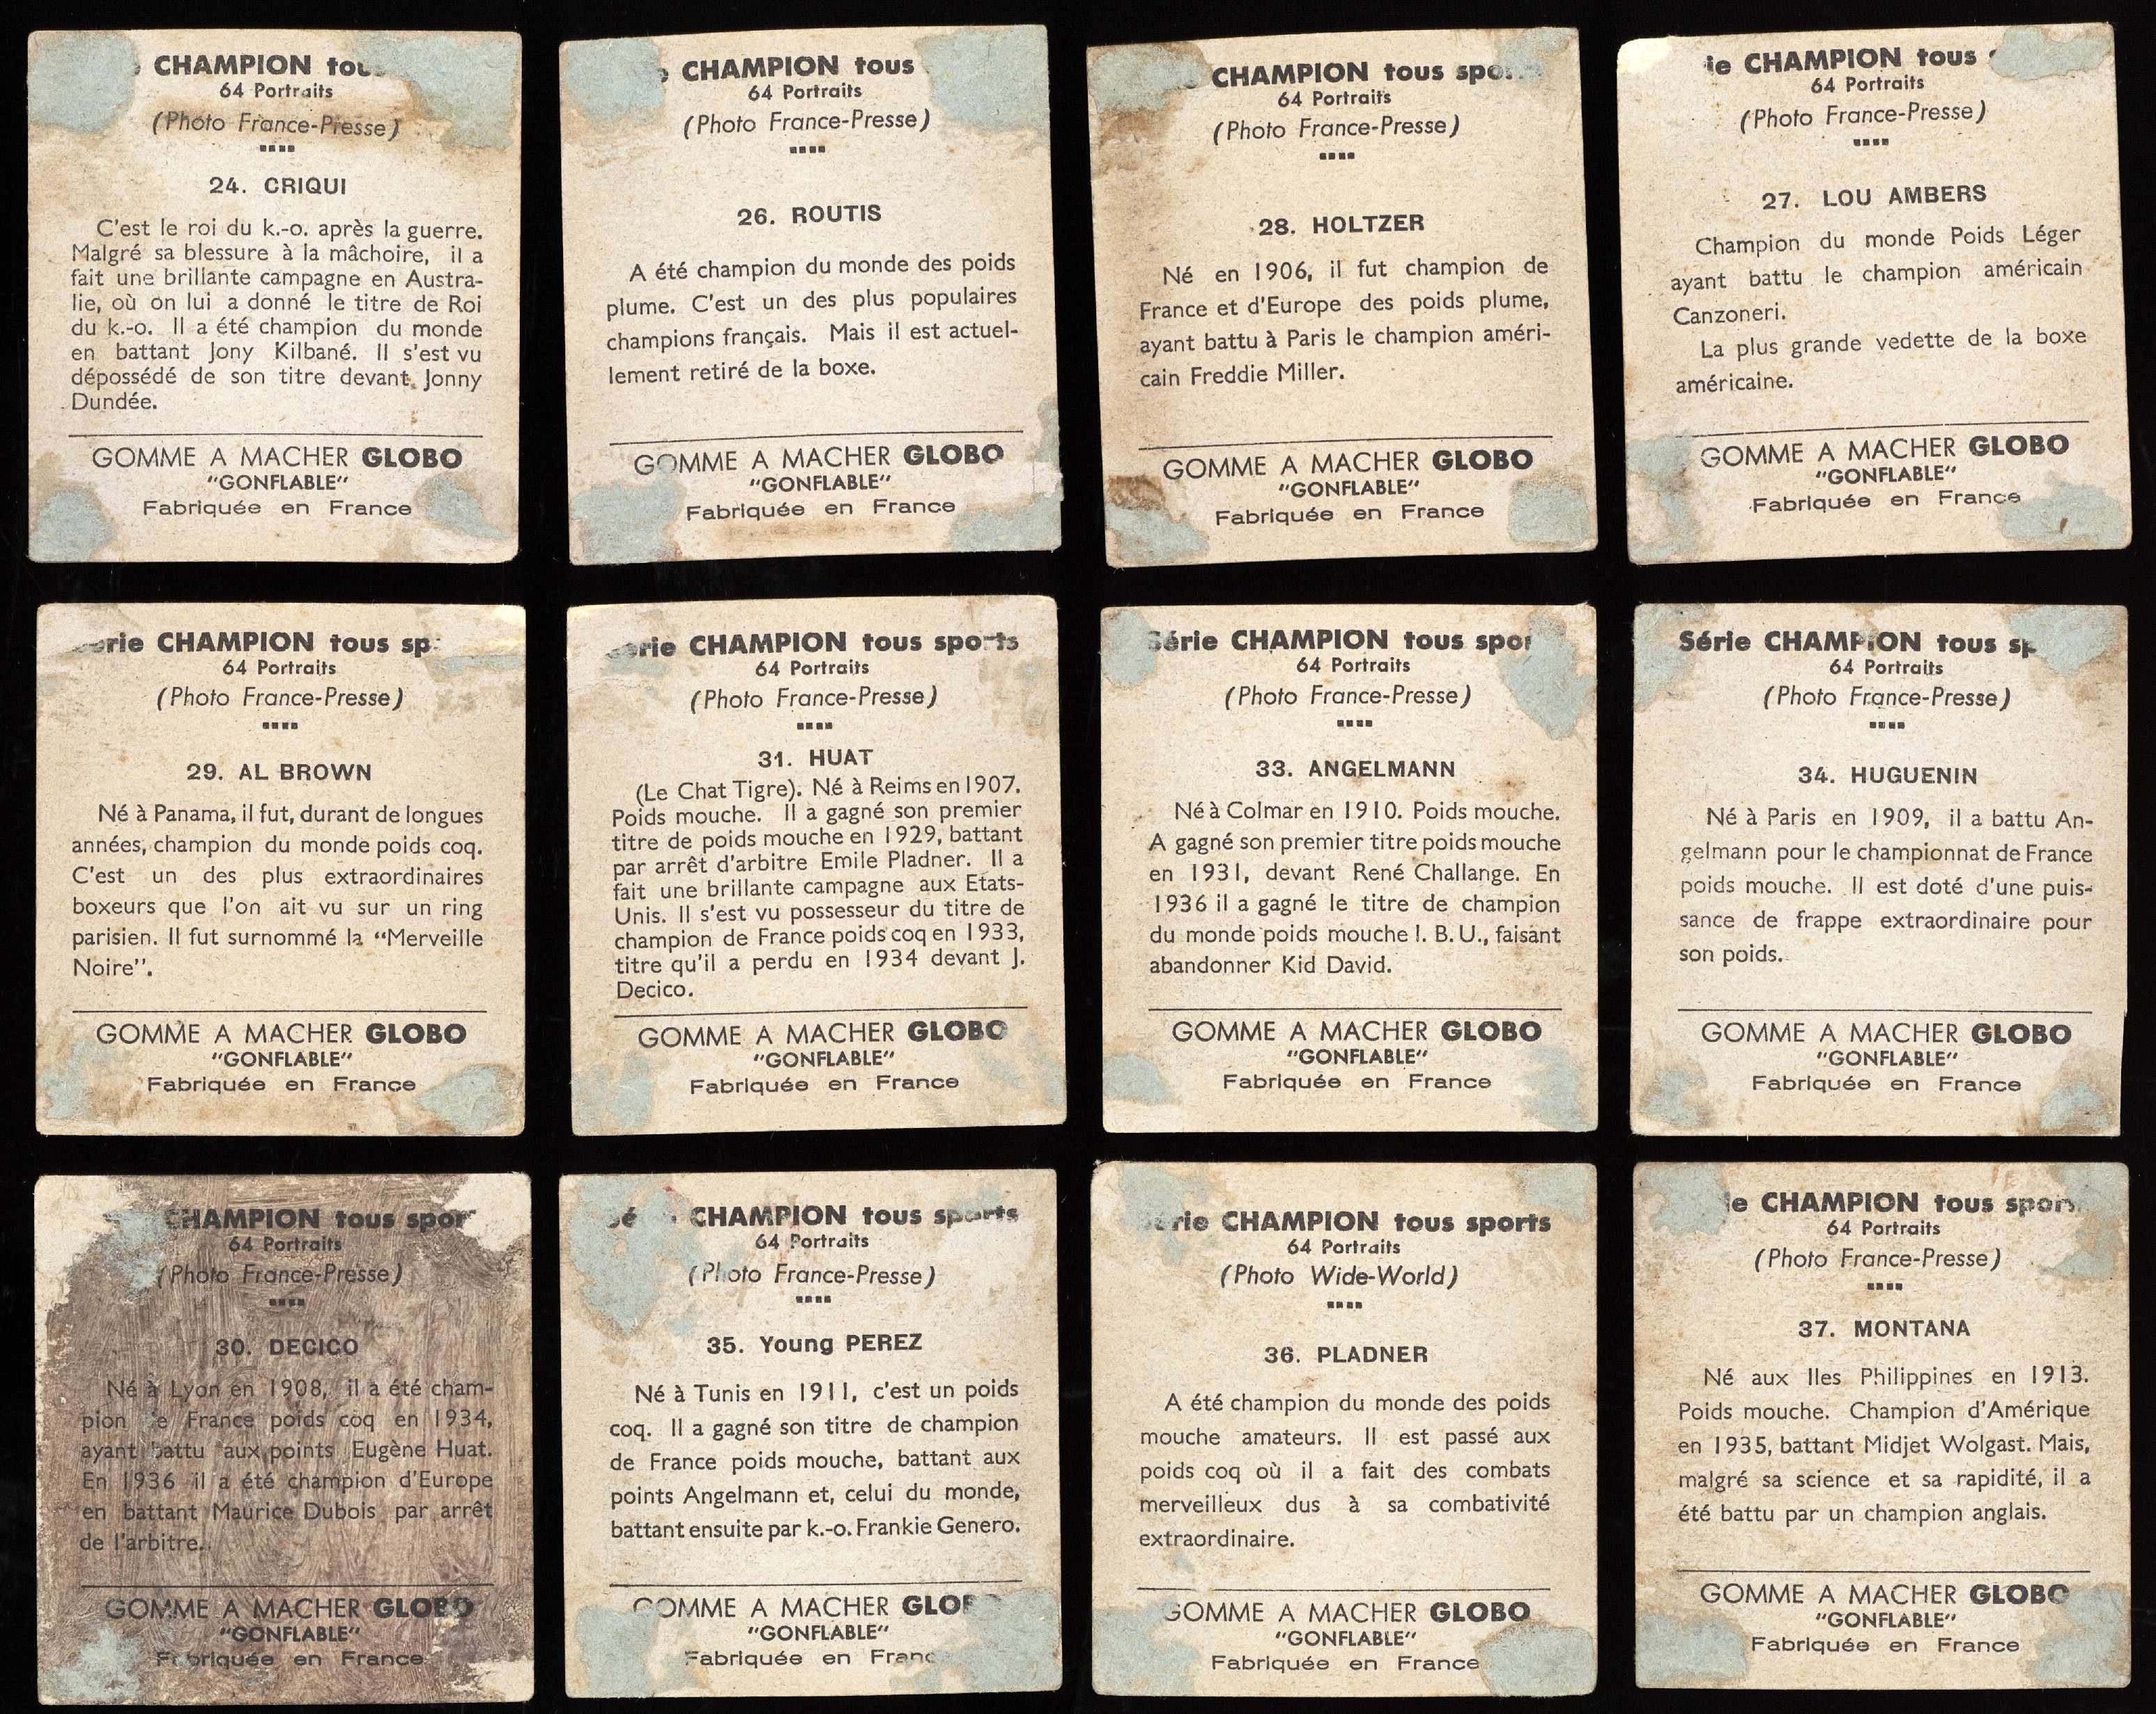 CHAMPION tous
64 Portraits
(Photo France-Presse)
24. CRIQUI
C'est le roi du k.-o. après la guerre.
Malgré sa blessure à la mâchoire, il a
fait une brillante campagne en Austra-
lie, où on lui a donné le titre de Roi
du k.-o. Il a été champion du monde
en battant Jony Kilbané. Il s'est vu
dépossédé de son titre devant Jonny
Dundée.
GOMME A MACHER GLOBO
"GONFLABLE"
Fabriquée en France
CHAMPION tous
64 Portraits
(Photo France-Presse)
26. ROUTIS
A été champion du monde des poids
plume. C'est un des plus populaires
champions français. Mais il est actuel-
lement retiré de la boxe.
GOMME A MACHER GLOBO
"GONFLABLE"
Fabriquée en France
CHAMPION tous sports
64 Portraits
(Photo France-Presse)
28. HOLTZER
Né en 1906, il fut champion de
France et d'Europe des poids plume,
ayant battu à Paris le champion améri-
cain Freddie Miller.
GOMME A MACHER GLOBO
"GONFLABLE"
Fabriquée en France
ie CHAMPION tous
64 Portraits
(Photo France-Presse)
27. LOU AMBERS
Champion du monde Poids Léger
ayant battu le champion américain
Canzoneri.
La plus grande vedette de la boxe
américaine.
GOMME A MACHER GLOBO
"GONFLABLE"
Fabriquée en France
érie CHAMPION tous sp
64 Portraits
(Photo France-Presse)
29. AL BROWN
Né à Panama, il fut, durant de longues
années, champion du monde poids coq.
C'est un des plus extraordinaires
boxeurs que l'on ait vu sur un ring
parisien. Il fut surnommé la "Merveille
Noire".
GOMME A MACHER GLOBO
"GONFLABLE"
Fabriquée en France
érie CHAMPION tous sports
64 Portraits
(Photo France-Presse)
31. HUAT
(Le Chat Tigre). Né à Reims en 1907.
Poids mouche. Il a gagné son premier
titre de poids mouche en 1929, battant
par arrêt d'arbitre Emile Pladner. Il a
fait une brillante campagne aux Etats-
Unis. Il s'est vu possesseur du titre de
champion de France poids coq en 1933,
titre qu'il a perdu en 1934 devant J.
Decico.
GOMME A MACHER GLOBO
"GONFLABLE"
Fabriquée en France
Série CHAMPION tous spor
64 Portraits
(Photo France-Presse)
33. ANGELMANN
Né à Colmar en 1910. Poids mouche.
A gagné son premier titre poids mouche
en 1931, devant René Challange. En
1936 il a gagné le titre de champion
du monde poids mouche I. B. U., faisant
abandonner Kid David.
GOMME A MACHER GLOBO
"GONFLABLE"
Fabriquée en France
Série CHAMPION tous sp
64 Portraits
(Photo France-Presse)
34. HUGUENIN
Né à Paris en 1909, il a battu An-
gelmann pour le championnat de France
poids mouche. Il est doté d'une puis-
sance de frappe extraordinaire pour
son poids.
GOMME A MACHER GLOBO
"GONFLABLE"
Fabriquée en France
CHAMPION tous spor
64 Portraits
(Photo France-Presse)
30. DECICO
Né à Lyon en 1908, il a été cham-
pion de France poids coq en 1934,
ayant battu aux points Eugène Huat.
En 1936 il a été champion d'Europe
en battant Maurice Dubois par arrêt
de l'arbitre.
GOMME A MACHER GLOBO
"GONFLABLE"
Fabriquée en France
CHAMPION tous sports
64 Portraits
(Photo France-Presse)
35. Young PEREZ
Né à Tunis en 1911, c'est un poids
coq. Il a gagné son titre de champion
de France poids mouche, battant aux
points Angelmann et, celui du monde,
battant ensuite par k.-o. Frankie Genero.
GOMME A MACHER GLOBO
"GONFLABLE"
Fabriquée en France
Série CHAMPION tous sports
64 Portraits
(Photo Wide-World)
36. PLADNER
A été champion du monde des poids
mouche amateurs. Il est passé aux
poids coq où il a fait des combats
merveilleux dus à sa combativité
extraordinaire.
GOMME A MACHER GLOBO
"GONFLABLE"
Fabriquée en France
ie CHAMPION tous sports
64 Portraits
(Photo France-Presse)
37. MONTANA
Né aux Iles Philippines en 1913.
Poids mouche. Champion d'Amérique
en 1935, battant Midjet Wolgast. Mais,
malgré sa science et sa rapidité, il a
été battu par un champion anglais.
GOMME A MACHER GLOBO
"GONFLABLE"
Fabriquée en France